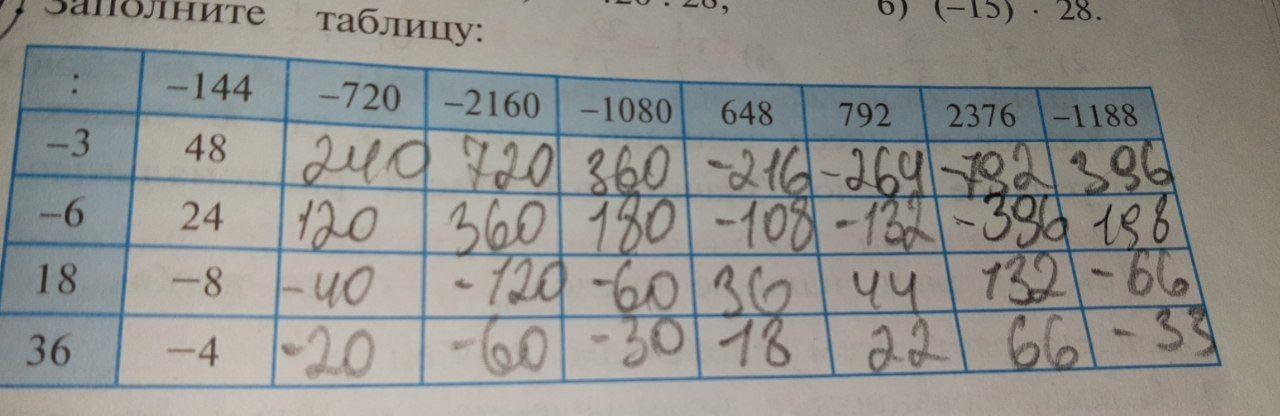 Заполните таблицу:
б) (−15) · 28.
: −144 −720 −2160 −1080 648 792 2376 −1188
−3 48 240 720 360 -216 -264 -792 396
−6 24 120 360 180 -108 -132 -396 198
18 −8 -40 -120 -60 36 44 132 -66
36 −4 -20 -60 -30 18 22 66 -33